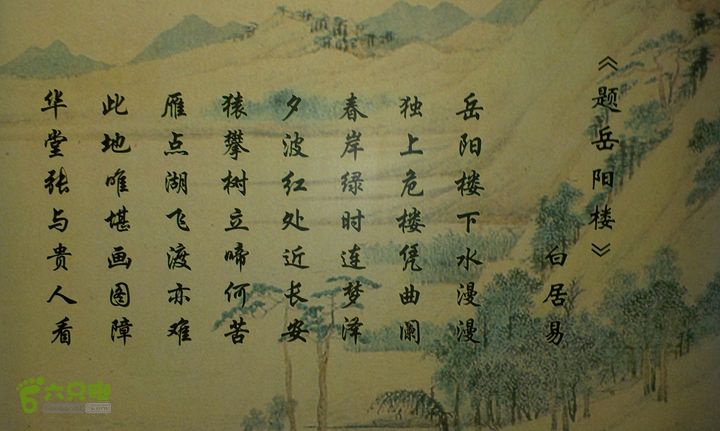 《题岳阳楼》
白居易
岳阳楼下水漫漫
独上危楼凭曲阑
春岸绿时连梦泽
夕波红处近长安
猿攀树立啼何苦
雁点湖飞渡亦难
此地唯堪画图障
华堂张与贵人看
六只脚
.com